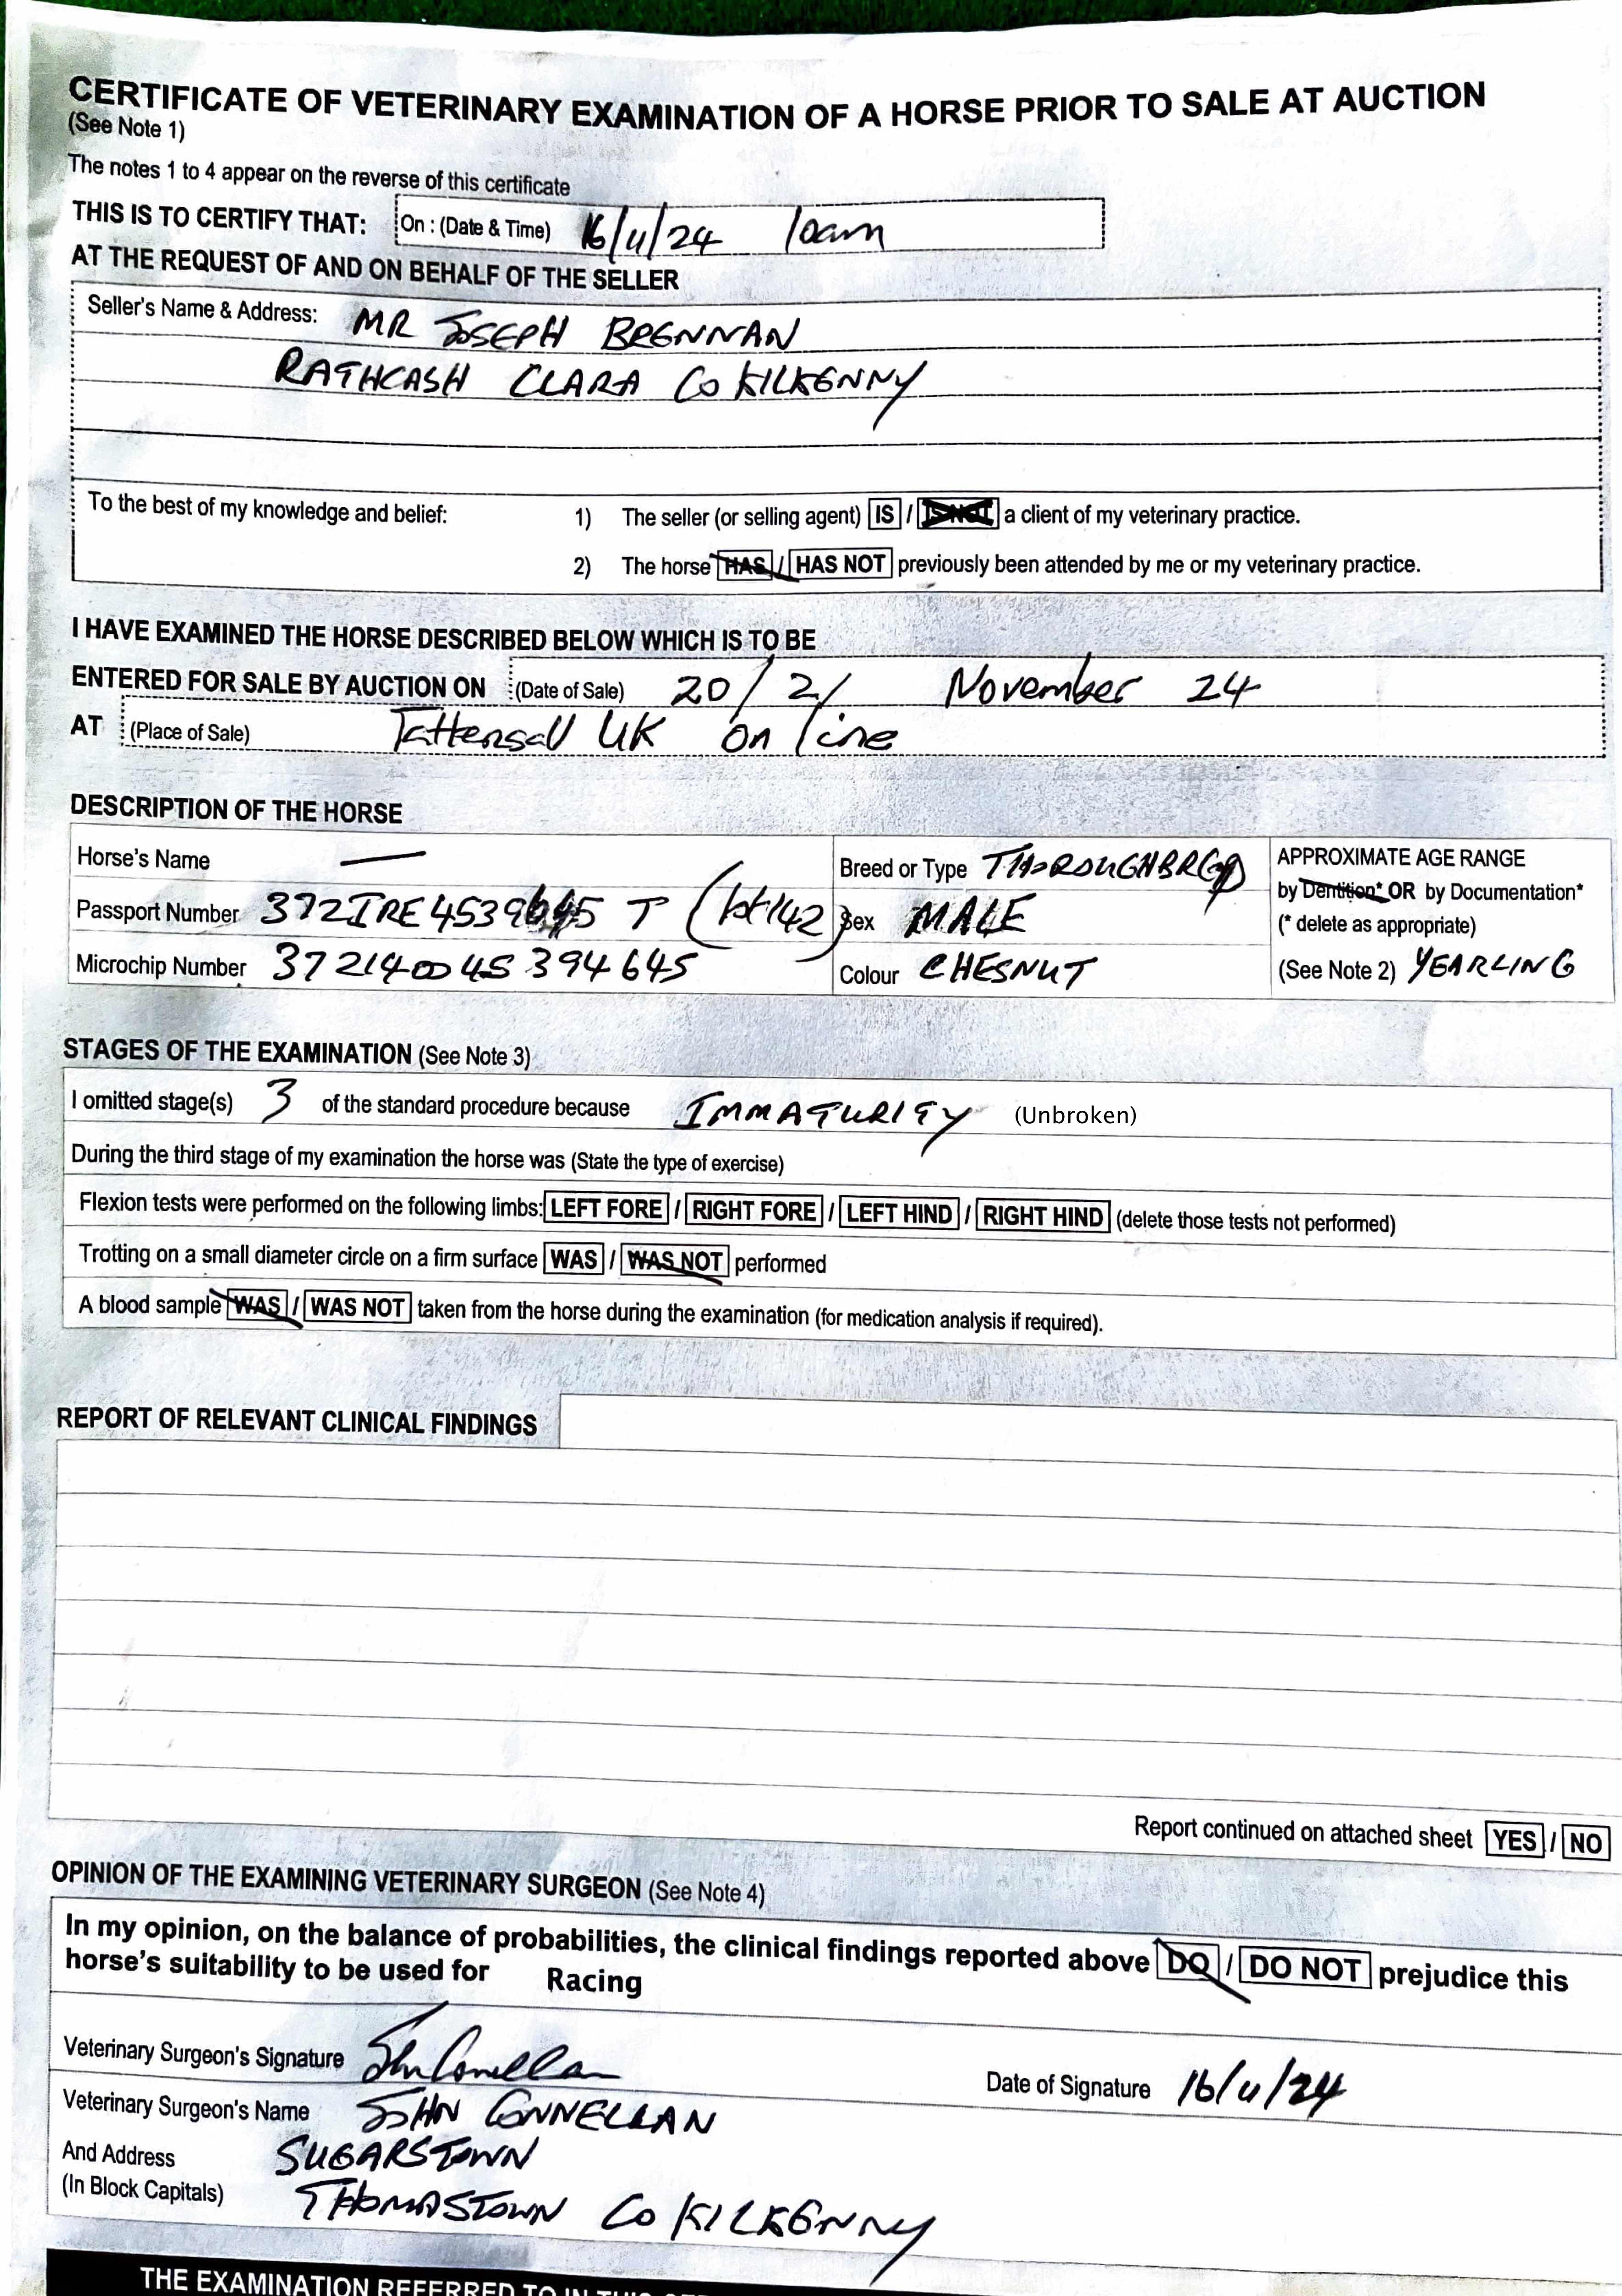 CERTIFICATE OF VETERINARY EXAMINATION OF A HORSE PRIOR TO SALE AT AUCTION
(See Note 1)
The notes 1 to 4 appear on the reverse of this certificate
THIS IS TO CERTIFY THAT: On : (Date & Time) 16/11/24 10am
AT THE REQUEST OF AND ON BEHALF OF THE SELLER
Seller's Name & Address: MR JOSEPH BRENNAN
RATHCASH CLARA CO KILKENNY
To the best of my knowledge and belief: 1) The seller (or selling agent) IS / IS NOT a client of my veterinary practice.
2) The horse HAS / HAS NOT previously been attended by me or my veterinary practice.
I HAVE EXAMINED THE HORSE DESCRIBED BELOW WHICH IS TO BE
ENTERED FOR SALE BY AUCTION ON (Date of Sale) 20/21 November 24
AT (Place of Sale) Tattersall UK On line
DESCRIPTION OF THE HORSE
Horse's Name — Breed or Type THOROUGHBRED APPROXIMATE AGE RANGE
by Dentition* OR by Documentation*
Passport Number 372IRE4539 T Sex MALE (* delete as appropriate)
Microchip Number 372140045394645 Colour CHESNUT (See Note 2) YEARLING
STAGES OF THE EXAMINATION (See Note 3)
I omitted stage(s) 3 of the standard procedure because IMMATURITY (Unbroken)
During the third stage of my examination the horse was (State the type of exercise)
Flexion tests were performed on the following limbs: LEFT FORE / RIGHT FORE / LEFT HIND / RIGHT HIND (delete those tests not performed)
Trotting on a small diameter circle on a firm surface WAS / WAS NOT performed
A blood sample WAS / WAS NOT taken from the horse during the examination (for medication analysis if required).
REPORT OF RELEVANT CLINICAL FINDINGS
Report continued on attached sheet YES / NO
OPINION OF THE EXAMINING VETERINARY SURGEON (See Note 4)
In my opinion, on the balance of probabilities, the clinical findings reported above DO / DO NOT prejudice this
horse's suitability to be used for Racing
Veterinary Surgeon's Signature John Connellan Date of Signature 16/11/24
Veterinary Surgeon's Name JOHN CONNELLAN
And Address SUGARSTOWN
(In Block Capitals) THOMASTOWN CO KILKENNY
THE EXAMINATION REFERRED TO IN THIS